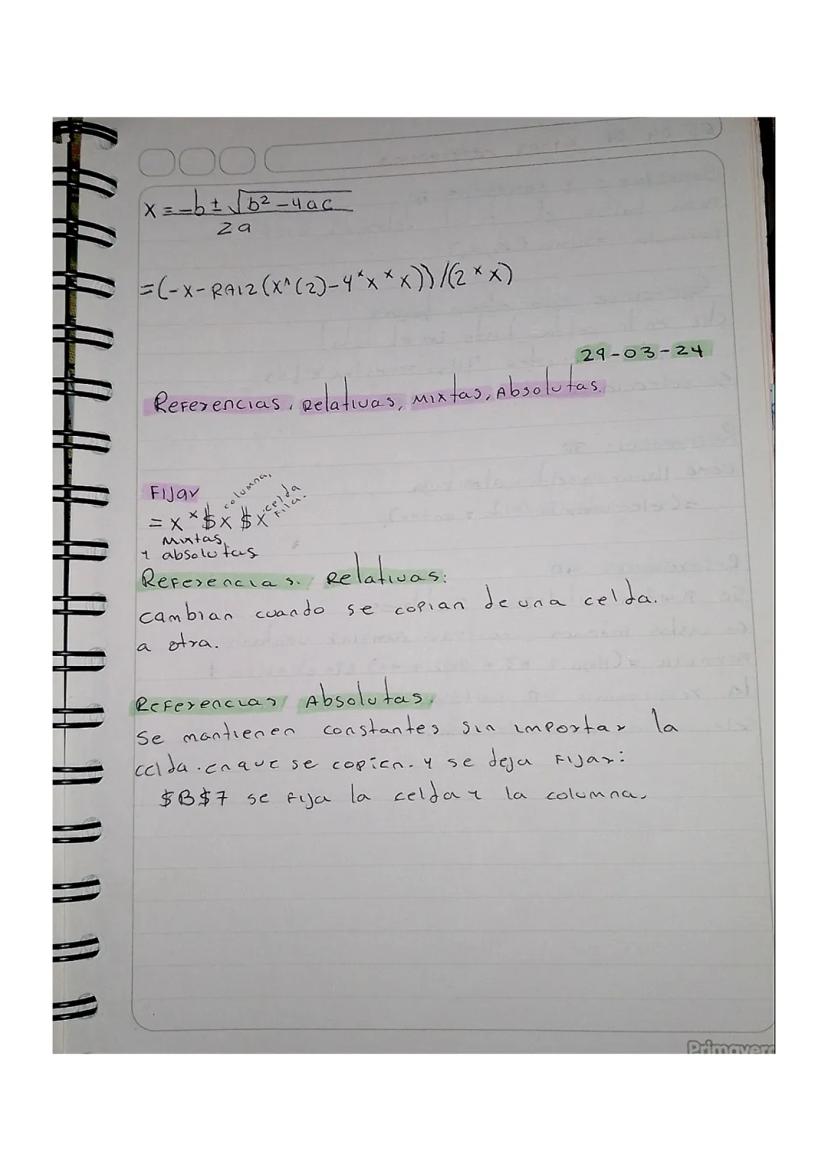 x = -b ± √b² - 4ac
2a
=(-x-RAIZ(x^(2)-4*x*x))/(2*x)
29-03-24
Referencias, Relativas, Mixtas, Absolutas.
Fijar
columna,
celda
Fila.
= x*$x$x
Mixtas
y absolutas
Referencias. Relativas:
cambian cuando se copian de una celda.
a otra.
Referencias Absolutas,
Se mantienen constantes sin importar la
celda. en que se copien. y se deja Fijar:
$B$7 se Fija la celda y la columna.
Primavera